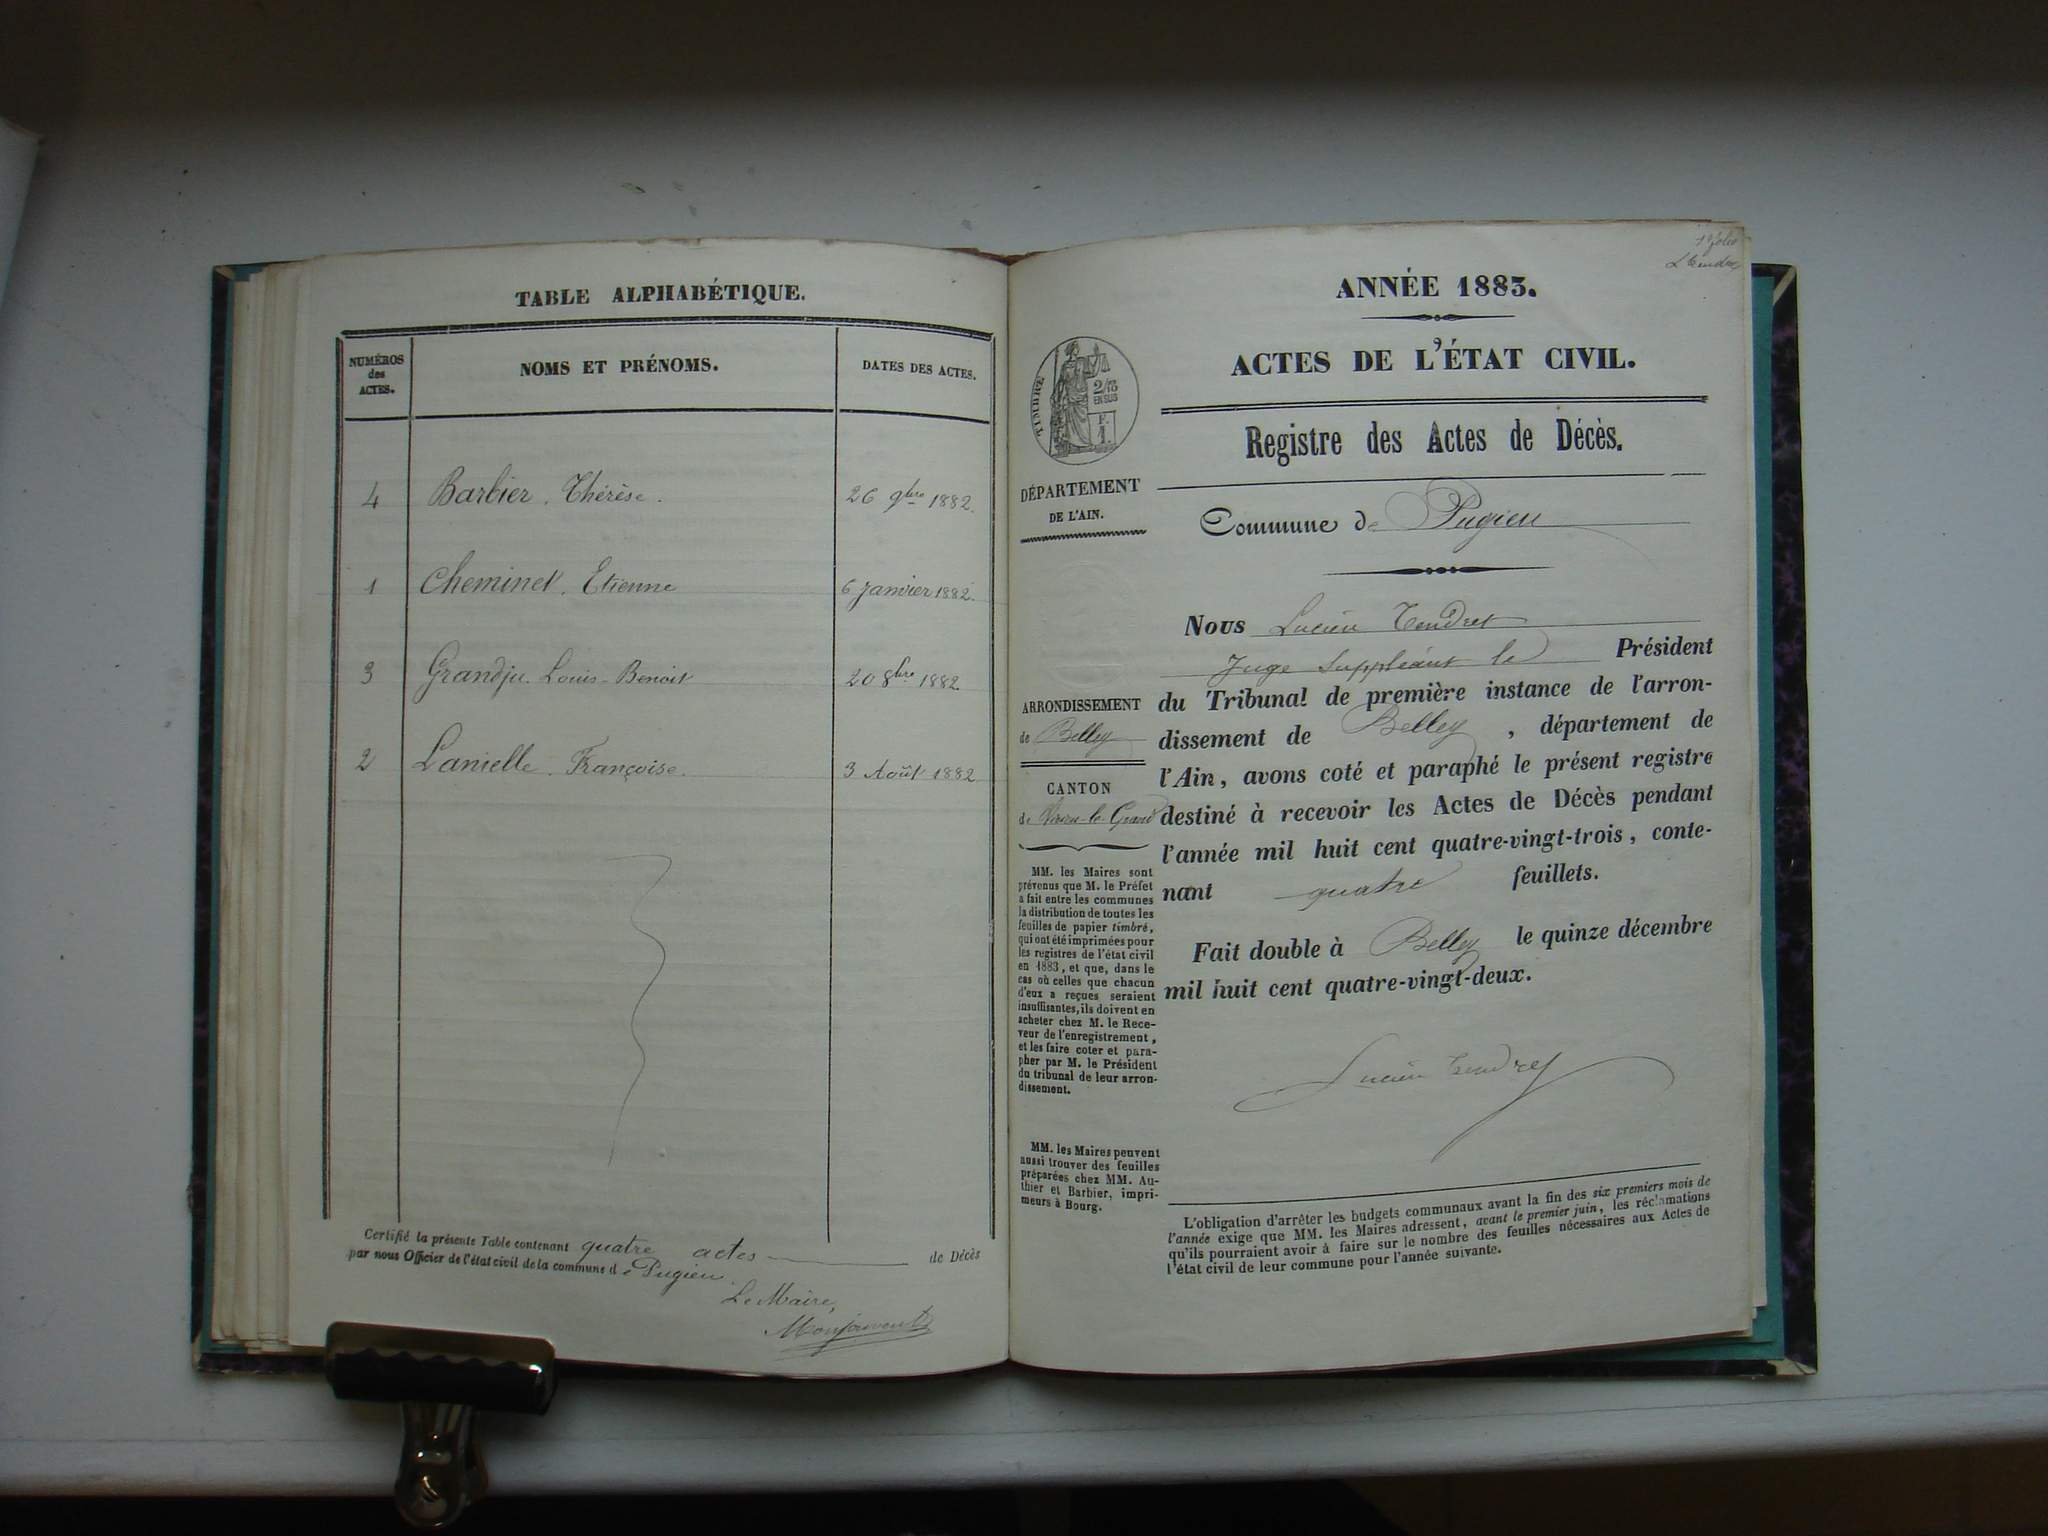 TABLE ALPHABÉTIQUE.
NUMÉROS
des
ACTES.
NOMS ET PRÉNOMS.
DATES DES ACTES.
4 Barbier. Thérèse. 26 9bre 1882.
1 Cheminet. Etienne 6 Janvier 1882.
3 Grandju. Louis-Benoit 20 8bre 1882
2 Lanielle. Françoise. 3 Août 1882
Certifié la présente Table contenant quatre actes de Décès
par nous Officier de l'état civil de la commune de Pugieu.
Le Maire,
Monjouvent
1er folio
L Tendret
ANNÉE 1883.
ACTES DE L'ÉTAT CIVIL.
TIMBRE
2/10
EN SUS
F.
1.
Registre des Actes de Décès.
DÉPARTEMENT
DE L'AIN.
Commune de Pugieu
Nous Lucien Tendret
Juge Suppléant le Président
du Tribunal de première instance de l'arron-
dissement de Belley, département de
l'Ain, avons coté et paraphé le présent registre
destiné à recevoir les Actes de Décès pendant
l'année mil huit cent quatre-vingt-trois, conte-
nant quatre feuillets.
Fait double à Belley le quinze décembre
mil huit cent quatre-vingt-deux.
Lucien Tendret
ARRONDISSEMENT
de Belley
CANTON
de Virieu-le-Grand
MM. les Maires sont
prévenus que M. le Préfet
a fait entre les communes
la distribution de toutes les
feuilles de papier timbré,
qui ont été imprimées pour
les registres de l'état civil
en 1883, et que, dans le
cas où celles que chacun
d'eux a reçues seraient
insuffisantes, ils doivent en
acheter chez M. le Rece-
veur de l'enregistrement,
et les faire coter et para-
pher par M. le Président
du tribunal de leur arron-
dissement.
MM. les Maires peuvent
aussi trouver des feuilles
préparées chez MM. Au-
thier et Barbier, impri-
meurs à Bourg.
L'obligation d'arrêter les budgets communaux avant la fin des six premiers mois de
l'année exige que MM. les Maires adressent, avant le premier juin, les réclamations
qu'ils pourraient avoir à faire sur le nombre des feuilles nécessaires aux Actes de
l'état civil de leur commune pour l'année suivante.